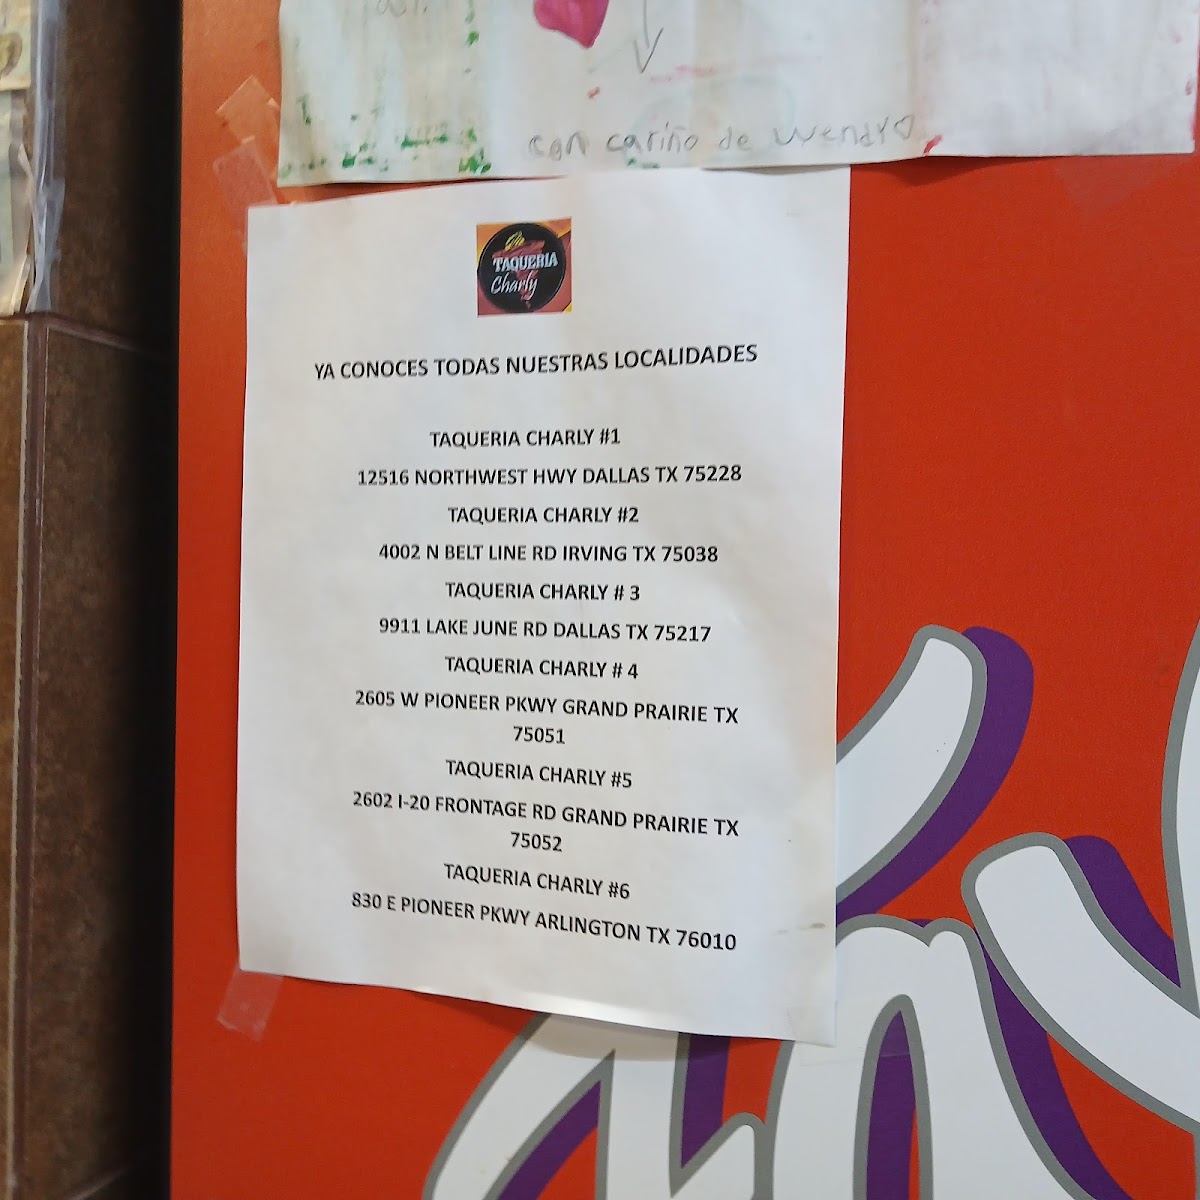 con cariño de Wendy
TAQUERIA
Charly
YA CONOCES TODAS NUESTRAS LOCALIDADES
TAQUERIA CHARLY #1
12516 NORTHWEST HWY DALLAS TX 75228
TAQUERIA CHARLY #2
4002 N BELT LINE RD IRVING TX 75038
TAQUERIA CHARLY # 3
9911 LAKE JUNE RD DALLAS TX 75217
TAQUERIA CHARLY # 4
2605 W PIONEER PKWY GRAND PRAIRIE TX
75051
TAQUERIA CHARLY #5
2602 I-20 FRONTAGE RD GRAND PRAIRIE TX
75052
TAQUERIA CHARLY #6
830 E PIONEER PKWY ARLINGTON TX 76010